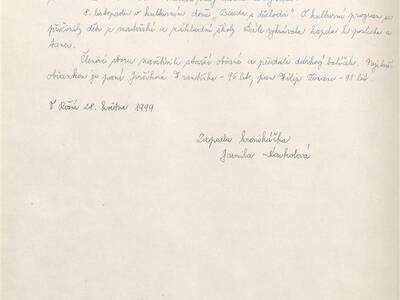 8. listopadu v kulturním domě "Beseda s důchodci". O kulturní program se
přičinily děti z mateřské a základní školy. Dále vyhrávala kapela k poslechu a
tanci.
Členové sboru navštívili starší občany a předali dárkový balíček. Nejstarší
občankou je paní Františka - 96 let, pan Filip - 91 let
V Roži 28. května 1999
Zapsala kronikářka
Jarmila